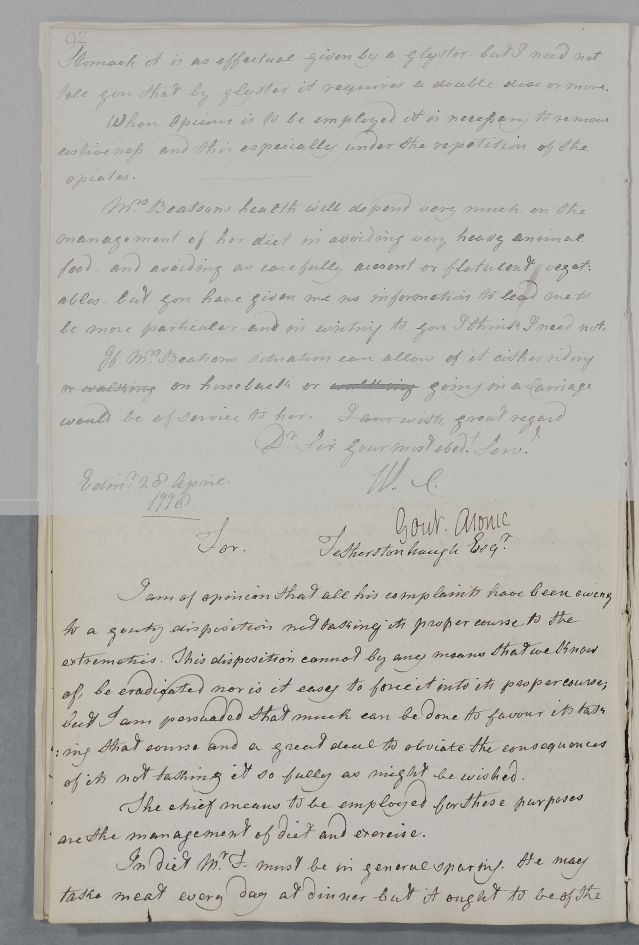 92
Stomach it is as effectual given by a glyster - but I need not
tele you that by glyster it requires a double dose or more.
When Opium is to be employed it is necessary to remove
costiveness and this especially under the repetition of the
opiates.
Mrs Beatsons health will depend very much on the
management of her diet in avoiding very heavy animal
food - and avoiding as carefully acescent or flatulent veget:
ables - but you have given me no information to lead me to
be more particular - and in writing to you I think I need not.
If Mrs Beatsons situation can allow of it either riding
or walking on horseback or walking going in a Carriage
would be of service to her. I am with great regard
Dr Sir your most obedt Servt
W. C.
Edinr 28 April.
Gout. Atonic
For. Fetherstonhaugh Esqr
I am of opinion that all his complaints have been owing
to a gouty disposition not taking its proper course to the
extremetis. This disposition cannot by any means that we know
of, be eradicated nor is it easy to force it into its proper course;
but I am persuaded that much can be done to favour its tak
:ing that course and a great deal to obviate the consequences
of its not taking it so fully as might be wished.
The chief means to be employed for these purposes
are the management of diet and exercise.
In diet Mr F. must be in general sparing. He may
take meat every day at dinner but it ought to be of the